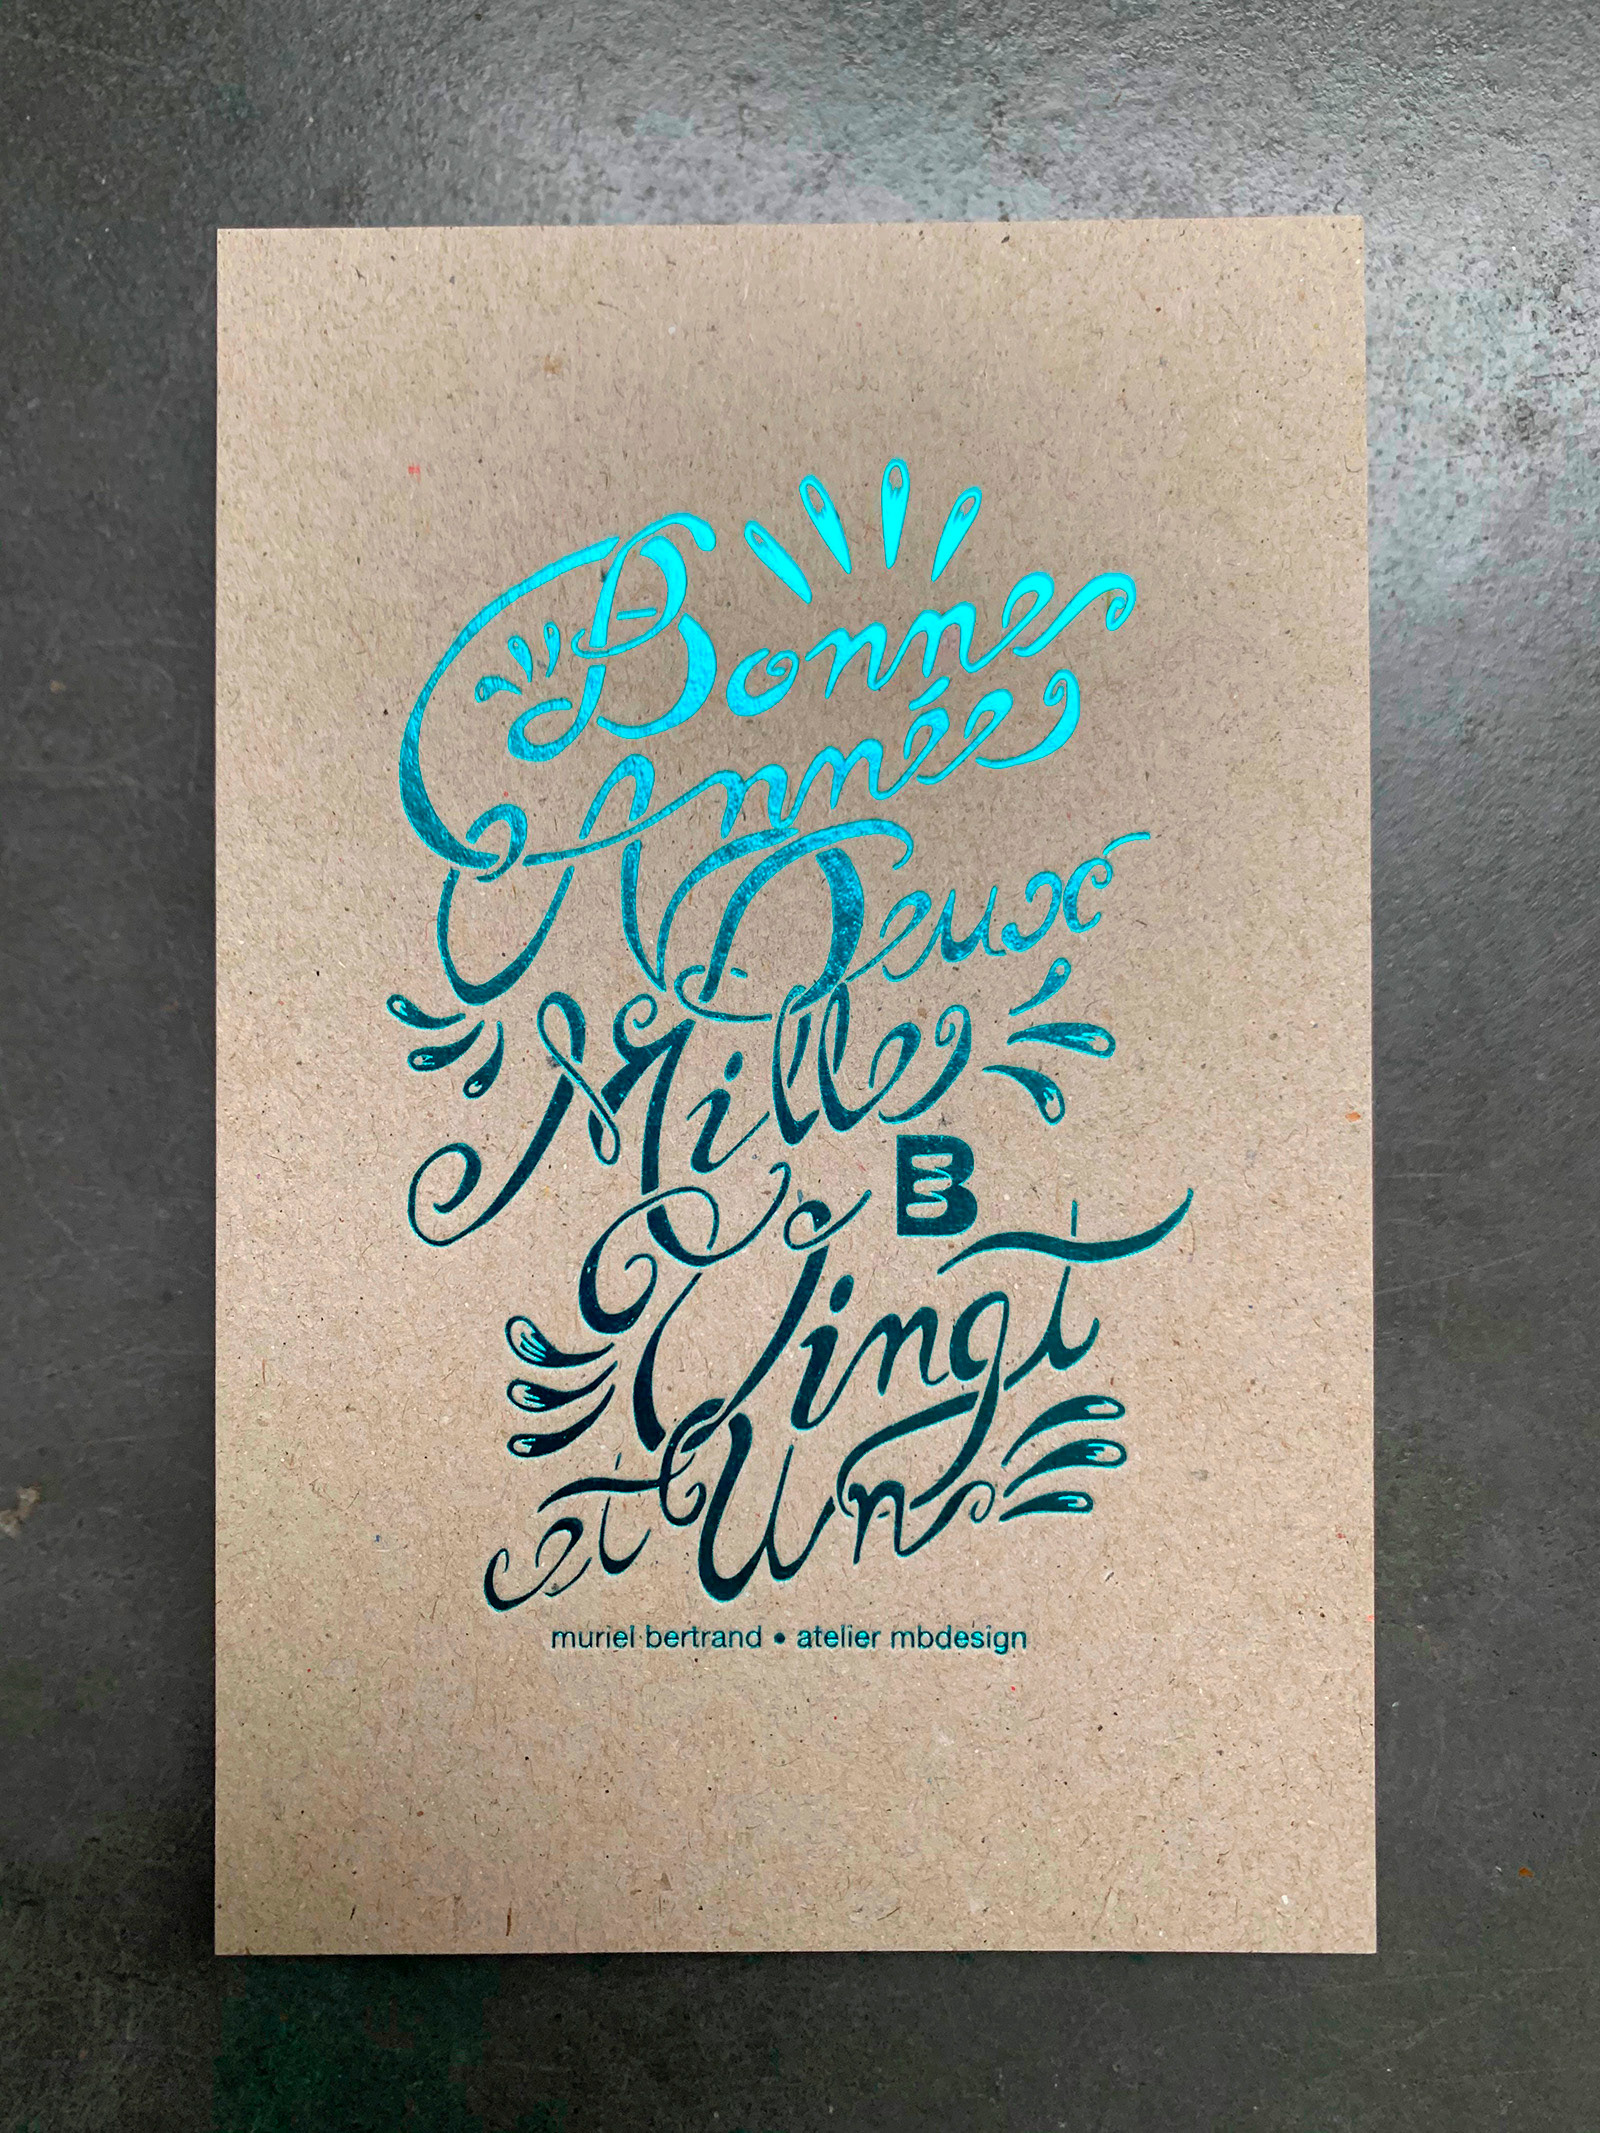 Bonne
Année
Deux
Mille
B
Vingt
et Un
muriel bertrand • atelier mbdesign